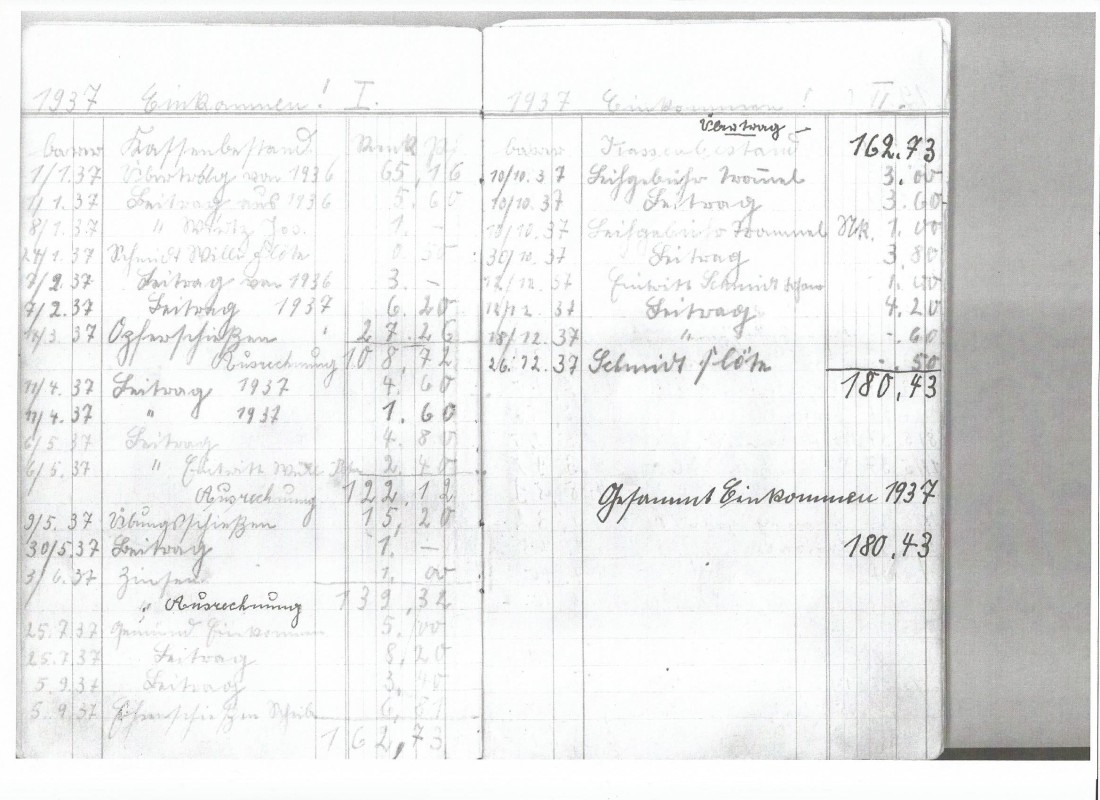 1937 Einkommen! I.
Kassenbestand Mark
1/1.37 Übertrag von 1936 65,16
1/1.37 Beitrag aus 1936 5.60
8/1.37 " Jos. 1. –
24/1.37 Schmidt Willi Flöte 0.50
7/2.37 Beitrag von 1936 3. –
7/2.37 Beitrag 1937 6.20
Opferschießen 27.26
Ausrechnung 108,72
11/4.37 Beitrag 1937 4.60
11/4.37 " 1937 1.60
6/5.37 Beitrag 4.80
6/5.37 " Eintritt 2.40
Ausrechnung 122.12
9/5.37 Übungsschießen 15,20
30/5.37 Beitrag 1. –
3/6.37 Zinsen 1.00
" Ausrechnung 139,32
25.7.37 Einkommen 5.00
25.7.37 Beitrag 8,20
5.9.37 Beitrag 3.40
5.9.37
162,73
1937 Einkommen! II.
Übertrag –
Kassenbestand 162.73
10/10.37 Leihgebühr Trommel 3.00
10/10.37 Beitrag 3.60
10/10.37 Leihgebühr Trommel Mk. 1.00
30/10.37 Beitrag 3 80
12/12.37 Eintritt Schmidt 1.00
12/12.37 Beitrag 4.20
18/12.37 " -.60
26.12.37 Schmidt Flöte .50
180,43
Gesammt Einkommen 1937
180.43